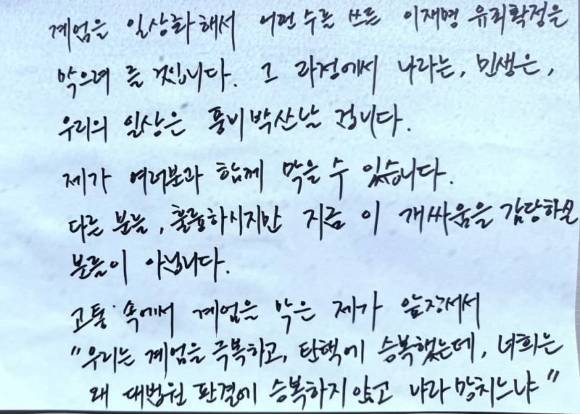 계엄을 일상화해서 어떤 수를 쓰든 이재명 유죄확정을
막으려 들 것입니다. 그 과정에서 나라는, 민생은,
우리의 일상은 풍비박산날 겁니다.
제가 여러분과 함께 막을 수 있습니다.
다른 분들, 훌륭하시지만 지금 이 개싸움을 감당하실
분들이 아닙니다.
고통 속에서 계엄을 막은 제가 앞장서서
"우리는 계엄을 극복하고, 탄핵에 승복했는데, 너희는
왜 대법원 판결에 승복하지 않고 나라 망치느냐"